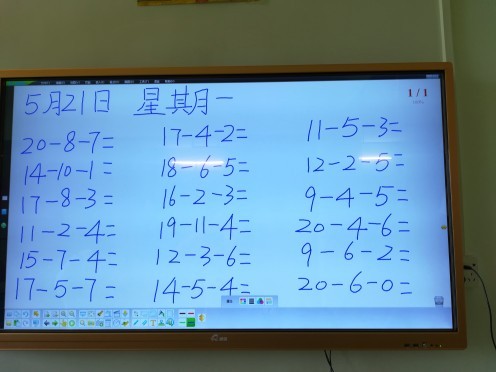 1/1
5月21日 星期一
20-8-7= 17-4-2= 11-5-3=
14-10-1= 18-6-5= 12-2-5=
17-8-3= 16-2-3= 9-4-5=
11-2-4= 19-11-4= 20-4-6=
15-7-4= 12-3-6= 9-6-2=
17-5-7= 14-5-4= 20-6-0=